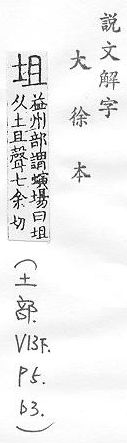 説文解字
大徐本
坥
益州部謂螾場曰坥
从土且聲七余切
(土部. V13下. P5. 63.)